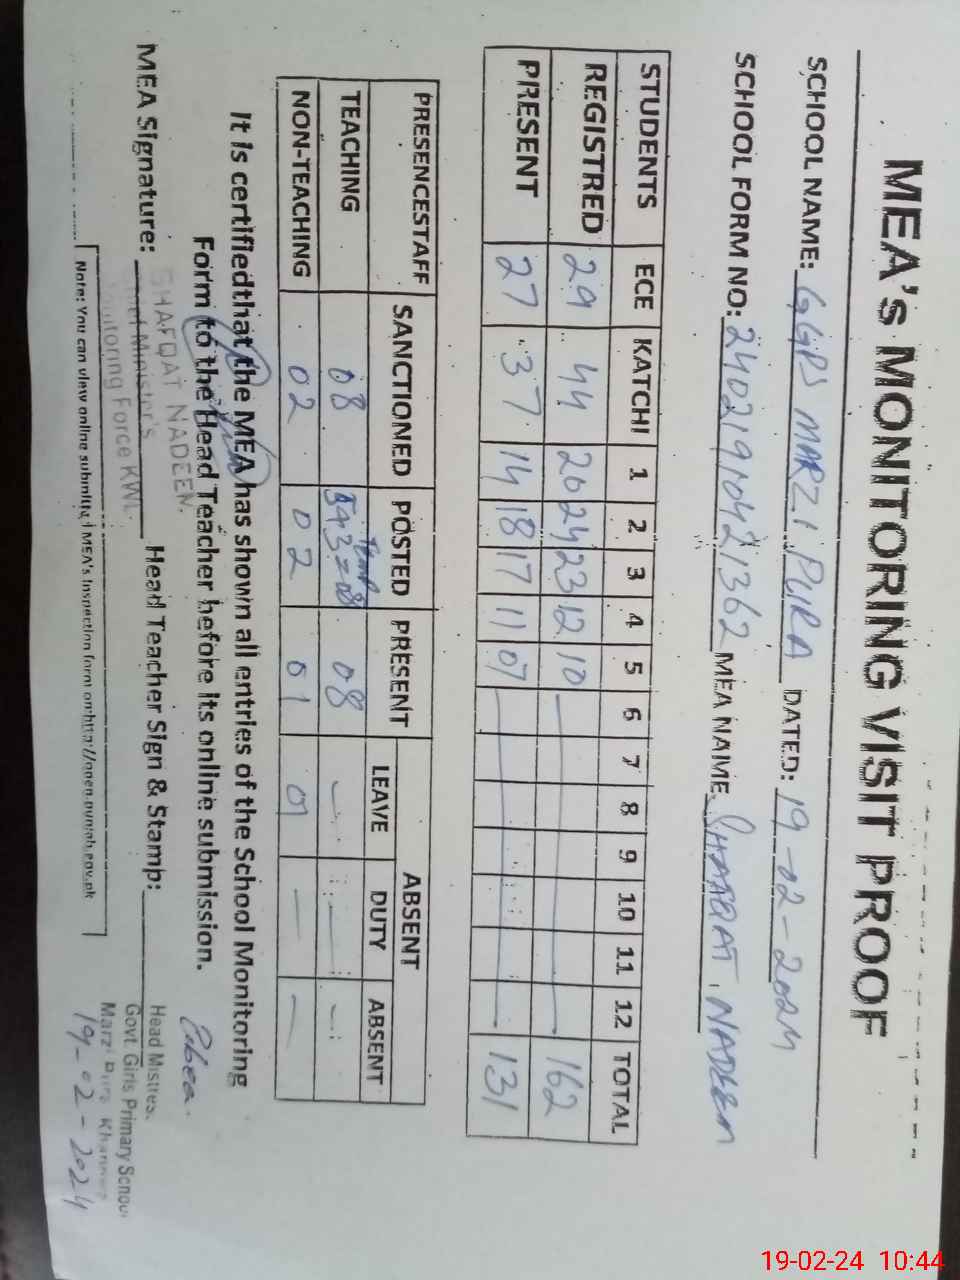 MEA'S MONITORING VISIT PROOF
SCHOOL NAME: GGPS MARZI PURA DATED: 19-02-2024
SCHOOL FORM NO: 24021910421362 MEA NAME. SHAFQAT NADEEM
STUDENTS ECE KATCHI 1 2 3 4 5 6 7 8 9 10 11 12 TOTAL
REGISTRED 29 44 20 24 23 12 10 162
PRESENT 27 37 14 18 17 11 07 131
PRESENCESTAFF SANCTIONED POSTED PRESENT ABSENT
LEAVE DUTY ABSENT
TEACHING 08 5+3=08 08
NON-TEACHING 02 02 01 01
It is certifiedthat the MEA has shown all entries of the School Monitoring
Form to the Head Teacher before its online submission.
MEA Signature: Head Teacher Sign & Stamp:
SHAFQAT NADEEN.
Chief Minister's
Monitoring Force KWL
Head Mistres.
Govt. Girls Primary School
Marzi Pura
19-02-2024
Note: You can view online submitted MEA's Inspection form on http://open.punjab.gov.pk
19-02-24 10:44